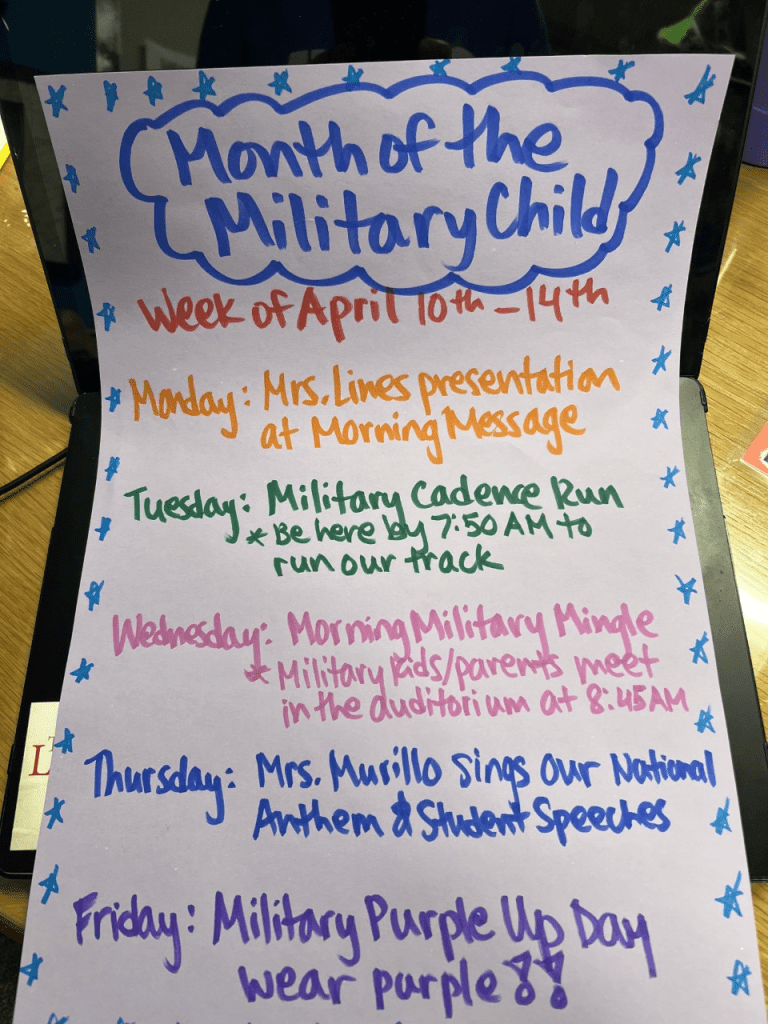 Month of the
Military Child
Week of April 10th - 14th
Monday: Mrs. Lines presentation
at Morning Message
Tuesday: Military Cadence Run
* Be here by 7:50 AM to
run our track
Wednesday: Morning Military Mingle
* Military Kids/parents meet
in the auditorium at 8:45AM
Thursday: Mrs. Murillo Sings Our National
Anthem & Student Speeches
Friday: Military Purple Up Day
wear purple!!